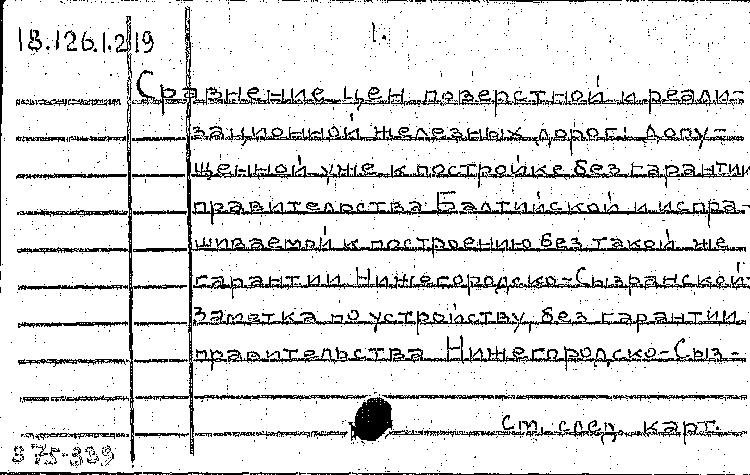 18.126.1.219
1.
Сравнение цен поверстной и реали-
зационной железных дорог: допу-
щенной уже к постройке без гарантии
правительства Балтийской и испра-
шиваемой к построению без такой же
гарантии Нижегородско-Сызранской
Заметка по устройству, без гарантии
правительства Нижегородско-Сыз-
См. след. карт.
375-339